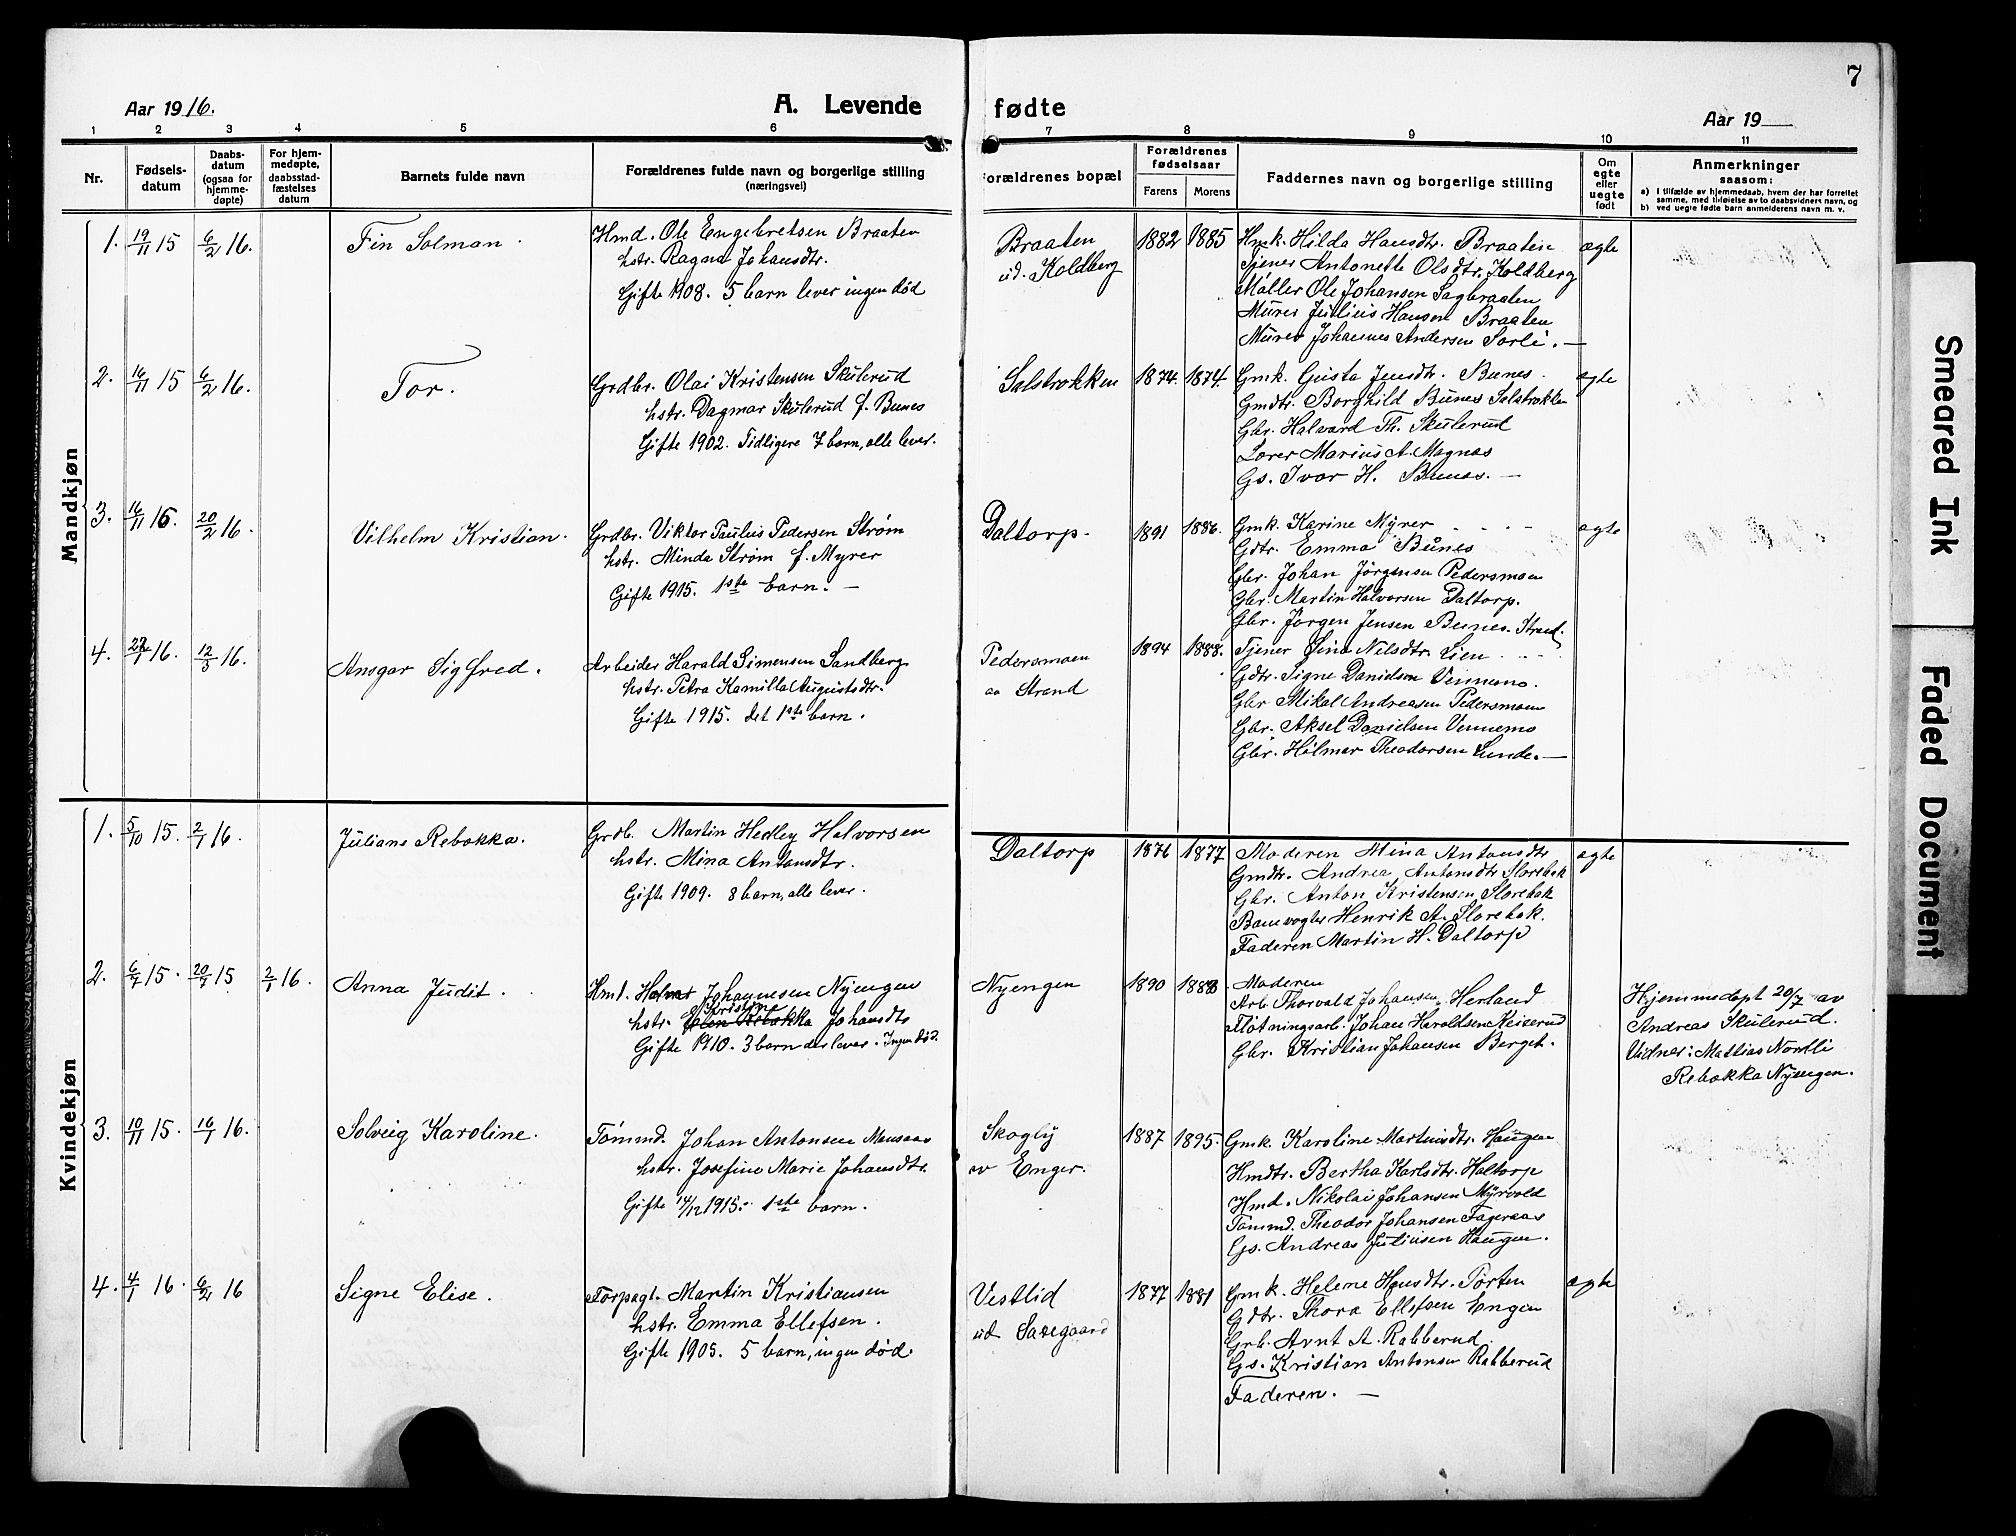 7
Aar 1916.
A. Levende
fødte
Aar 19
1 2 3 4 5 6 7 8 9 10 11
Nr.
Fødsels-
datum
Daabs-
datum
(ogsaa for
hjemme-
døpte)
For hjem-
medøpte,
daabsstad-
fæstelses
datum
Barnets fulde navn
Forældrenes fulde navn og borgerlige stilling
(næringsvei)
Forældrenes bopæl
Forældrenes
fødselsaar
Farens
Morens
Faddernes navn og borgerlige stilling
Om
egte
eller
uegte
født
Anmerkninger
saasom:
a) I tilfælde av hjemmedaab, hvem der har forrettet
samme, med tilføielse av to daabsvidners navn, og
b) ved uegte fødte barn anmelderens navn m. v.
Mandkjøn
1. 19/11 15 6/2 16.
Fin Solman.
Hmd. Ole Engebretsen Braaten
hstr. Ragna Johansdtr.
Gifte 1908. 5 barn lever ingen død
Braaten
ud. Koldberg
1882 1885
Hmk. Hilda Hansdtr. Braaten
Tjener Antonette Olsdtr. Koldberg
Møller Ole Johansen Sagbraaten
Murer Julius Hansen Braaten
Murer Johannes Andersen Sorli.
ægte
2. 16/11 15 6/2 16.
Tor.
Grdbr. Olai Kristensen Skulerud
hstr. Dagmar Skulerud f. Bunes
Gifte 1902. Tidligere 7 barn, alle lever.
Solstrøkken
1874. 1874.
Gmk. Gusta Jensdtr. Bunes.
Gmdtr. Borghild Bunes Solstrøkken
Gbr. Halvard Th. Skulerud
Lærer Marius A. Magnæs
Gs. Ivar H. Bunes.
ægte
3. 16/11 15. 20/2 16.
Vilhelm Kristian.
Grdbr. Viktor Paulus Pedersen Strøm
hstr. Minda Strøm f. Myrer
Gifte 1915. 1ste barn.
Daltorp.
1891 1886.
Gmk. Karine Myrer
Gdtr. Emma Bunes
Gbr. Johan Jørgensen Pedersmoen
Gbr. Martin Halvorsen Daltorp.
Gbr. Jørgen Jensen Bunes. Strand.
ægte
4. 22/1 16. 12/3 16.
Ansgar Sigfred.
Arbeider Harald Simensen Sandberg
hstr. Petra Kamilla Augustsdtr.
Gifte 1915. det 1ste barn.
Pedersmoen
av Strand
1894 1888.
Tjener Nilsdtr. Lien
Gdtr. Signe Danielsen Vennemo.
Gbr Mikal Andreasen Pedersmoen
Gbr. Aksel Danielsen Vennemo
Gbr. Hilmar Theodorsen Lunde.
Kvindekjøn
1. 5/10 15. 2/1 16.
Juliane Rebekka.
Grdb. Martin Hedley Halvorsen
hstr. Mina Antonsdtr.
Gifte 1909. 8 barn, alle lever.
Daltorp
1876 1877
Moderen Mina Antonsdtr
Gmdtr. Andrea Antonsdtr Florebæk
Gbr. Anton Kristensen Florebæk
Banevogter Henrik A. Florebæk.
Faderen Martin H. Daltorp
ægte
2. 6/7 15. 20/7 15 2/1 16.
Anna Judit.
Hmd. Halvor Johannesen Nyengen
Kristine
hstr. Elen Rebekka Johansdtr
Gifte 1910. 3 barn der lever. Ingen død.
Nyengen
1890 1888
Moderen
Arb. Thorvald Johansen Herland
Fløtningsarb. Johan Haraldsen Keiserud
Gbr. Kristian Johansen Berget.
Hjemmedøpt 20/7 av
Andreas Skulerud.
Vidner: Mattias Nordli
Rebekka Nyengen.
3. 10/11 15. 16/1 16.
Solveig Karoline.
Tømmd. Johan Antonsen Monsaas
hstr. Josefine Marie Johansdtr.
Gifte 14/12 1915. 1ste barn.
Skogly
av Enger.
1887 1895.
Gmk. Karoline Martinsdtr. Haugen
Hmdtr. Bertha Karlsdtr. Haltorp
Hmd. Nikolai Johansen Myrvold
Tømmd. Theodor Johansen Fageraas
Gs. Andreas Juliusen Haugen.
4. 4/1 16. 6/2 16
Signe Elise.
Forpagt. Martin Kristiansen
hstr. Emma Ellefsen.
Gifte 1905. 5 barn, ingen død.
Vestlid
ud Saxegaard
1877 1881
Gmk. Helene Hansdtr. Torten
Gdtr. Thora Ellefsen Engen
Grb. Arnt A. Rabberud.
Gs. Kristian Antonsen Rabberud
Faderen.
ægte
Smeared Ink
Faded Document